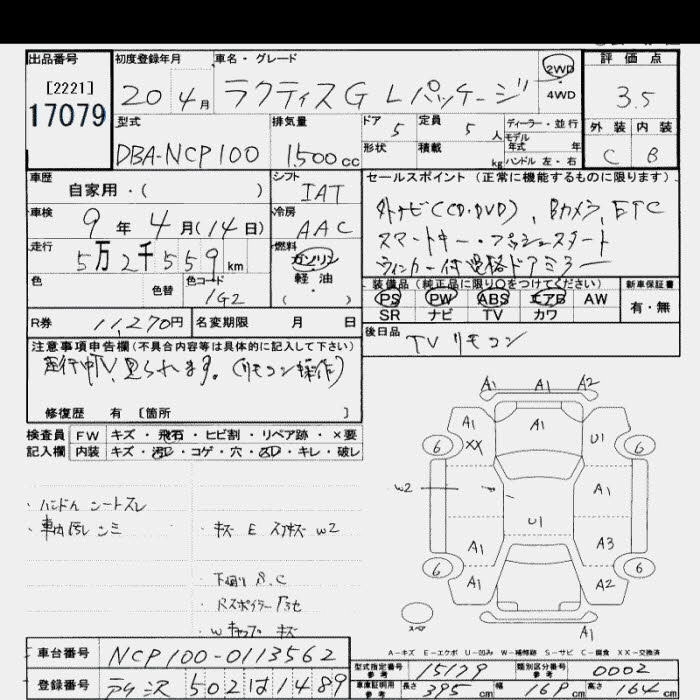 出品番号 初度登録年月 車名・グレード 2WD 評価点
[2221] 20 4月 ラクティスG Lパッケージ 4WD 3.5
17079
型式 排気量 ドア 5 定員 5人 ディーラー・並行 外装 内装
モデル年式 年
DBA-NCP100 1,500cc 形状 積載 kg ハンドル 左・右 C B
車歴 シフト セールスポイント (正常に機能するものに限ります).
自家用・( ) IAT
車検 冷房 外ナビ(CD.DVD), Bカメラ, ETC
9年4月(14日) AAC スマートキー・プッシュスタート
走行 燃料 ウィンカー付 ドアミラー
5万2千559km ガソリン
色 色替 色コード 軽油 装備品 (純正品に限り○をつけてください) 新車保証書
1G2 ( ) PS PW ABS エアB AW 有・無
SR ナビ TV カワ
R券 11,270円 名変期限 月 日 後日品
TVリモコン
注意事項申告欄(不具合内容等は具体的に記入して下さい)
走行中TV見られます。(リモコン操作)
修復歴 有 [箇所 ]
検査員 FW キズ・飛石・ヒビ割・リペア跡・×要
記入欄 内装 キズ・汚レ・コゲ・穴・スレ・キレ・破レ
A1 A1 A2
A1 XX A1 U1
6 6
W2 A1
U1
A1 A3
6 A1 A2 6
スペア A1
・ハンドル シートスレ
・車内汚レ シミ ・キズ E スリキズ W2
・下廻り S.C
・Rスポイラー
・Wキャップ キズ
A-キズ E-エクボ U-凹み W-補修跡 S-サビ C-腐食 XX-交換済
車台番号 NCP100-0113562 型式指定番号 参考 15179 類別区分番号 参考 0002
登録番号 502 は 1489 車庫証明用 参考 長さ 395cm 幅 169cm 高さ 164cm